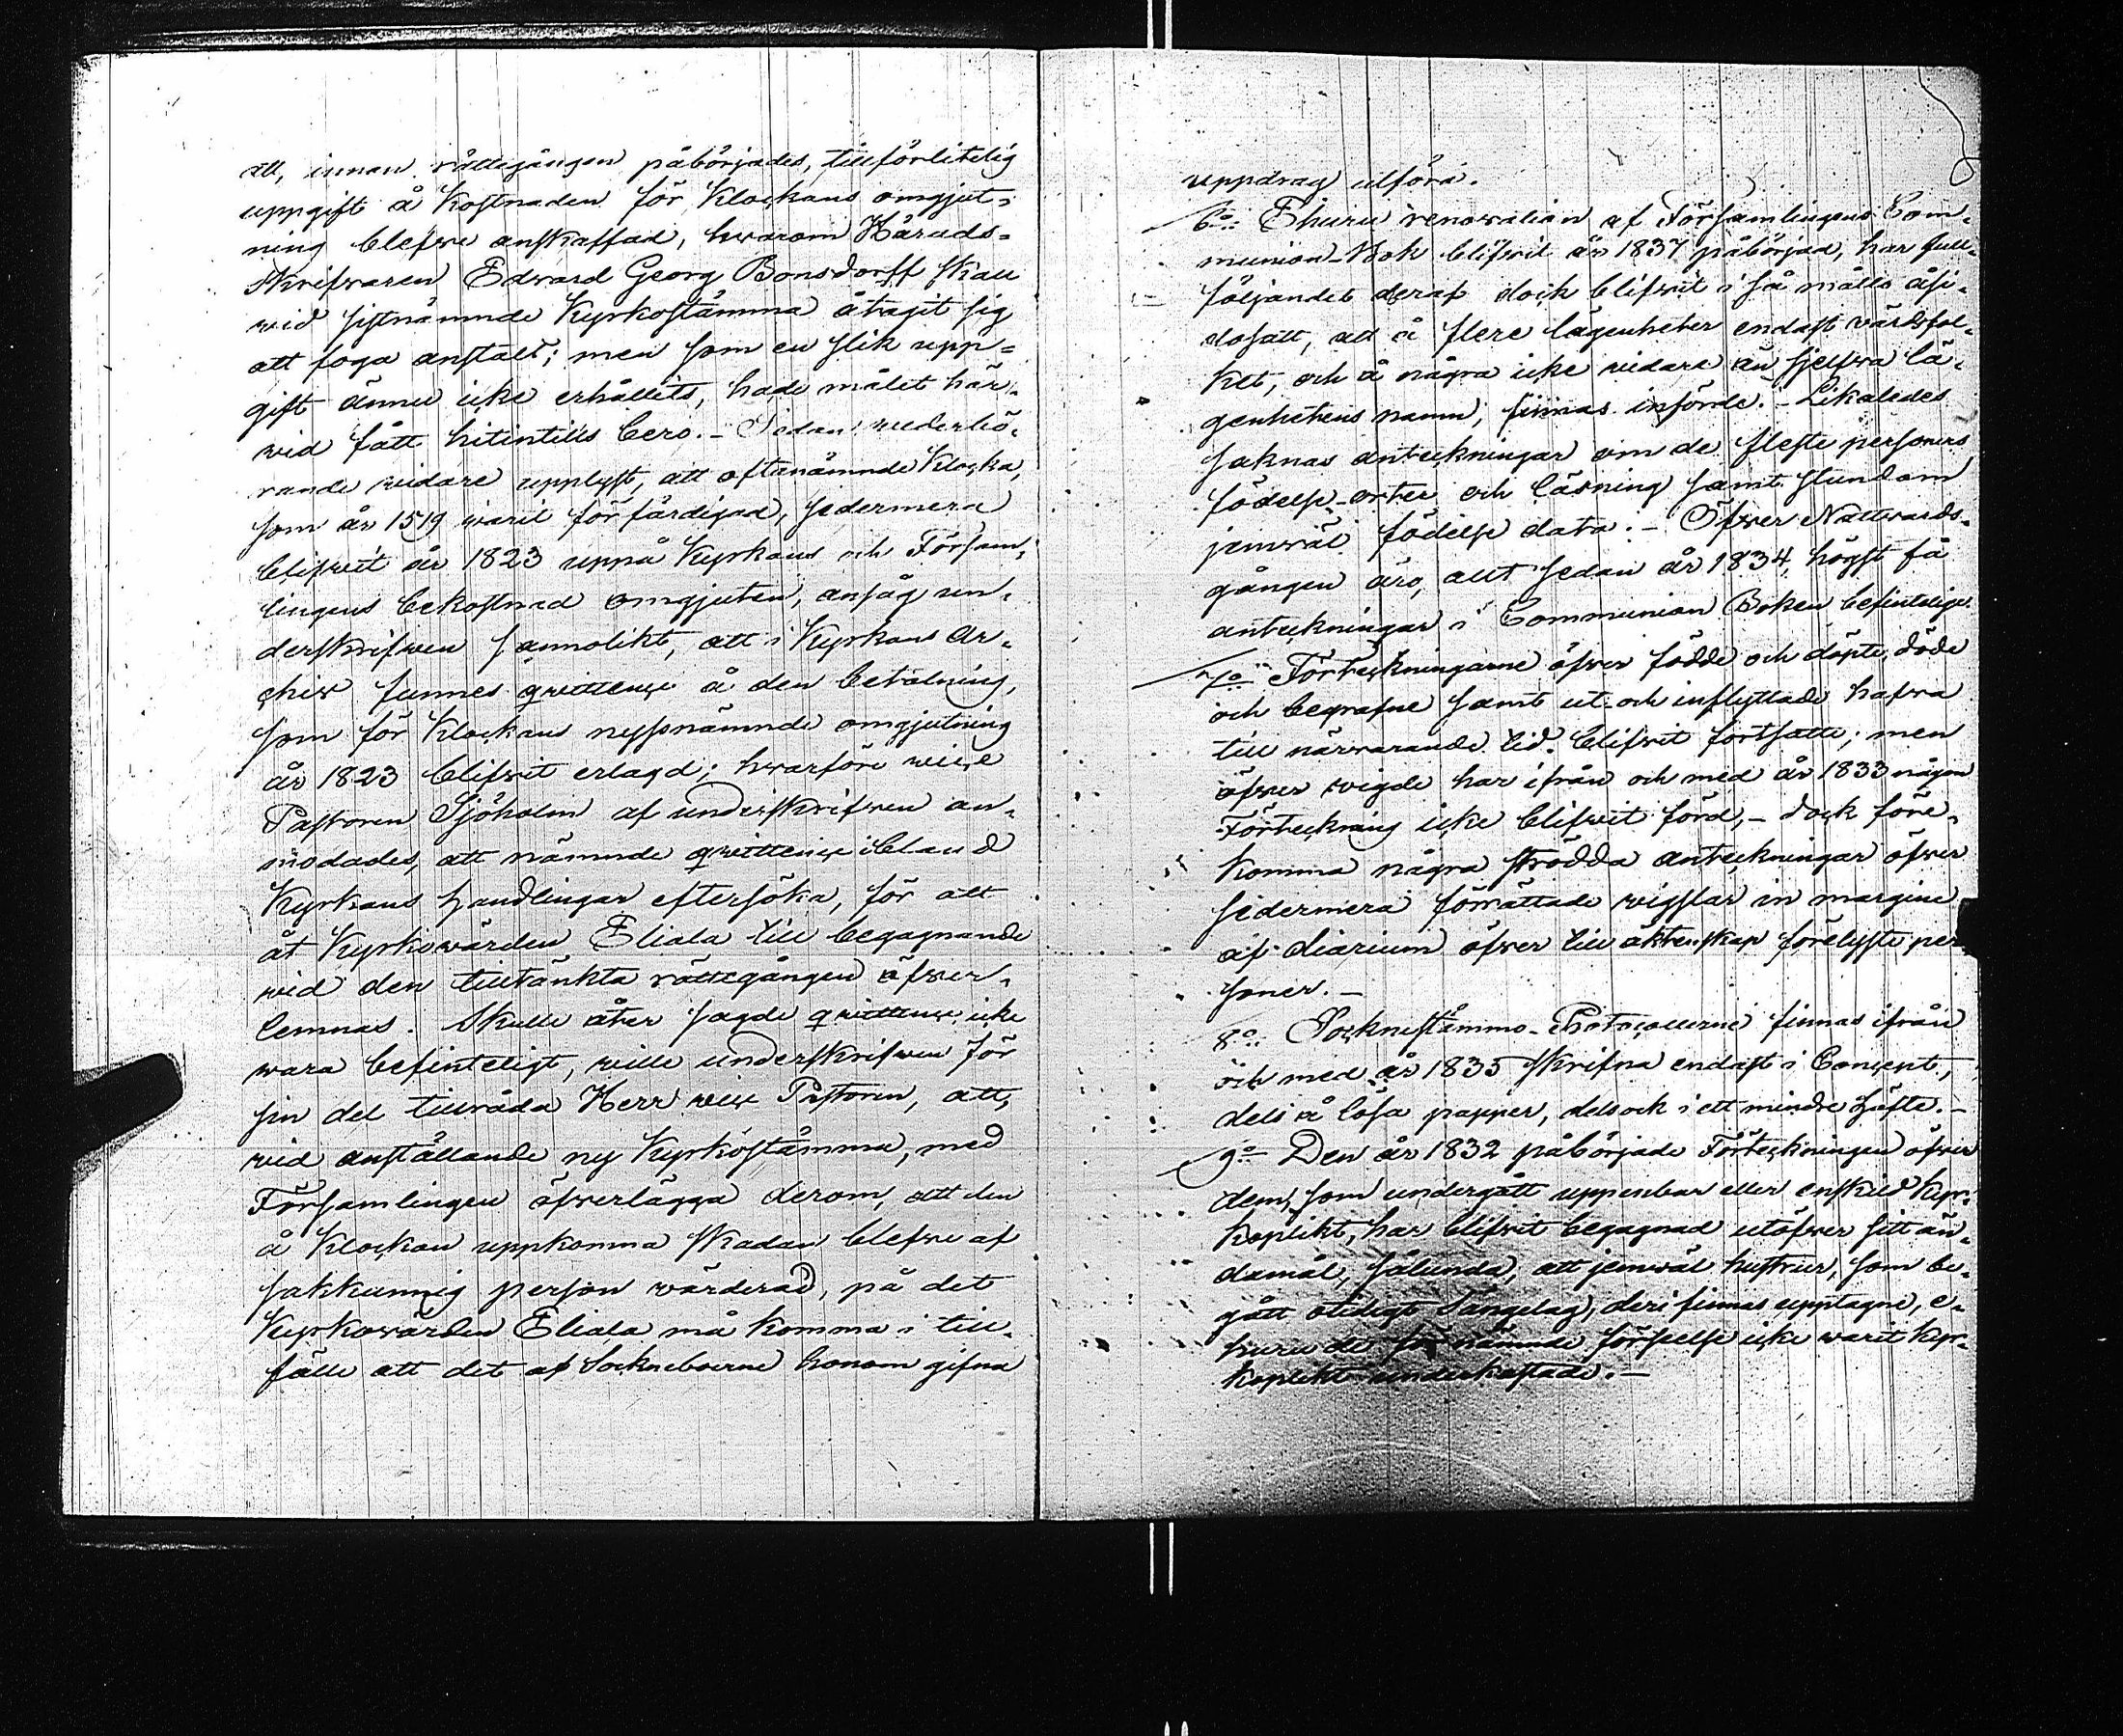 att, innan rättegången påbörjades, tillförlitelig
uppgift å Kostnaden för Klockans omgjut=
ning blefwe anskaffad, hwarom Härads=
skrifvaren Edvard Georg Bonsdorff skall
wid sistnämnde Kyrkostämma åtagit sig
att foga anstalt; men som en slik upp=
gift ännu icke erhållits, hade målet här-
wid fått hitintills bero. - Sedan wederbö-
rande widare upplyst, att oftanämnde Klocka,
som år 1519 warit förfärdigad, sedermera
blifwit år 1823 uppå Kyrkans och Försam-
lingens bekostnad omgjuten, ansåg un-
derskrifwen sannolikt, att i Kyrkans Ar-
chiv funnes qwittence å den betalning,
som för Klockans nyssnämnde omgjutning
år 1823 blifwit erlagd; hwarföre wice
Pastoren Sjöholm af underskrifwen an-
modades, att nämnde qwittence ibland
Kyrkans handlingar eftersöka, för att
åt Kyrkowärden Eliala till begagnande
wid den tilltänkta rättegången öfwer-
lemnas. Skulle åter sagde qwittence icke
wara befinteligt, wille underskrifwen för
sin del tillråda Herr wice Pastoren, att,
wid anställande ny Kyrkostämma, med
Församlingen öfwerlägga derom, att den
å Klockan uppkomma skadan blefwe af
sakkunnig person wärderad, på det
Kyrkowärden Eliala må komma i till-
fälle att det af Sockneboerne honom gifna
uppdrag utföra.
6:o Ehuru renovation af Församlingens Com-
munion-Bok blifwit år 1837 påbörjad, har full-
följandet deraf dock blifwit i så måtto åsi-
dosatt, att å flere lägenheter endast värdsfol-
ket, och å några icke widare än sjelfwa lä-
genhetens namn, finnas införde. - Likaledes
saknas anteckningar om de fleste personers
födelse-orter och läsning samt stundom
jemwäl födelse data. - Öfwer Nattwards-
gången äro, allt sedan år 1834, högst få
anteckningar i Communion Boken befintelige.
7:o Förteckningarne öfwer födde och döpte, döde
och begrafne samt ut- och inflyttade hafwa
till närwarande tid blifwit fortsatte; men
öfwer wigde har ifrån och med år 1833 någon
Förteckning icke blifwit förd, - dock före-
komma några strödda anteckningar öfwer
sedermera förrättade wigslar in margine
af diarium öfwer till äktenskap förelyste per-
soner. -
8:o Socknestämmo-Protocollerne finnas ifrån
och med år 1835 skrifna endast i Concept,
dels å lösa papper, dels ock i ett mindre häfte. -
9:o Den år 1832 påbörjade Förteckningen öfwer
dem, som undergått uppenbar eller enskild Kyr-
koplikt, har blifwit begagnad utöfwer sitt än-
damål, sålunda, att jemwäl hustrur, som be-
gått otidigt Sängelag, deri finnas upptagne, e-
huru de för nämnde förseelse icke warit Kyr-
koplikt underkastade. -